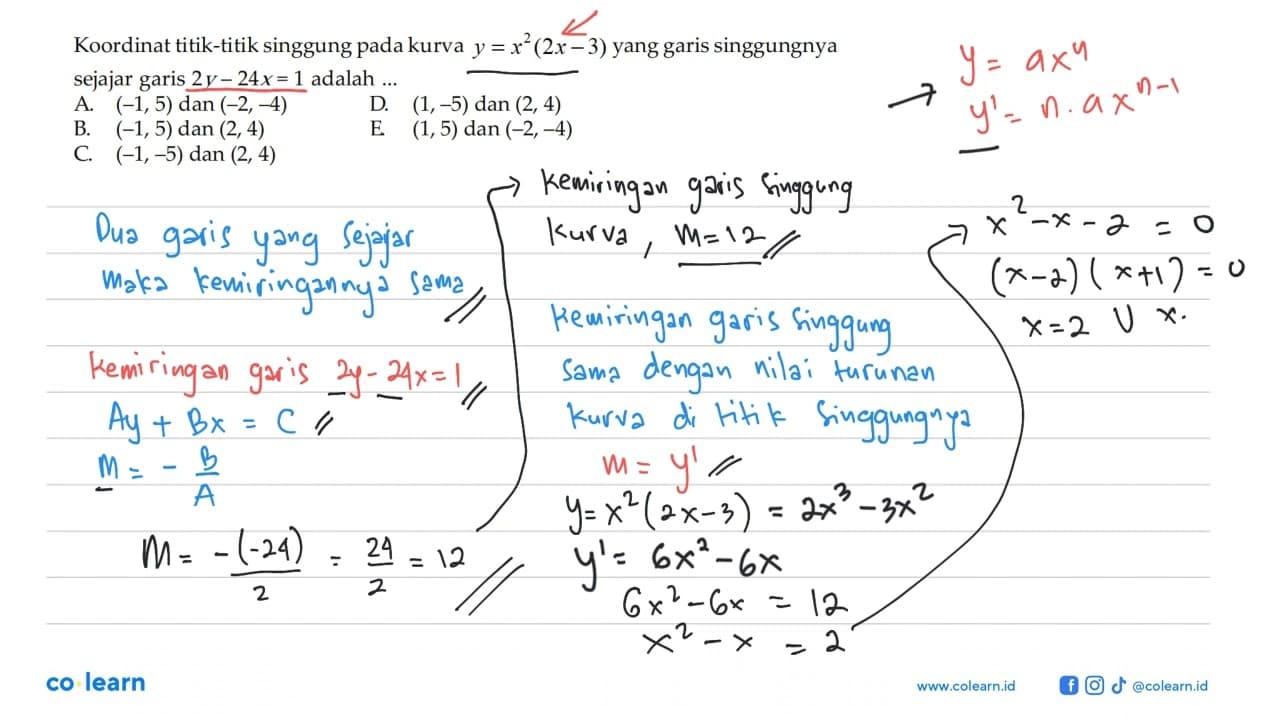 Koordinat titik-titik singgung pada kurva y = x²(2x – 3) yang garis singgungnya
sejajar garis 2y – 24x = 1 adalah ...
A. (–1, 5) dan (–2, –4)
B. (–1, 5) dan (2, 4)
C. (–1, –5) dan (2, 4)
D. (1, –5) dan (2, 4)
E. (1, 5) dan (–2, –4)
y = ax⁴
y' = n.ax^(n-1)
Dua garis yang Sejajar
maka kemiringannya sama
Kemiringan garis 2y - 24x = 1
Ay + Bx = C
M = - B/A
M = -(-24)/2 = 24/2 = 12
kemiringan garis Singgung
Kurva, m = 12
Kemiringan garis Singgung
Sama dengan nilai turunan
Kurva di titik Singgungnya
m = y'
y = x²(2x - 3) = 2x³ - 3x²
y' = 6x² - 6x
6x² - 6x = 12
x² - x = 2
x² - x - 2 = 0
(x - 2)(x + 1) = 0
x = 2 ∪ x.
co learn
www.colearn.id
@colearn.id